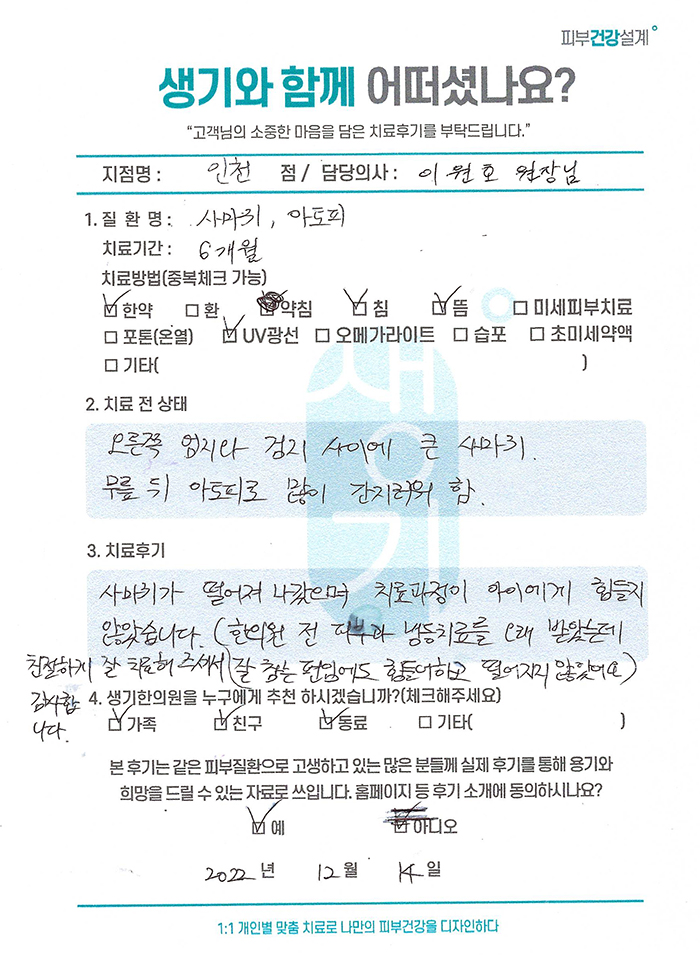 피부건강설계
생기와 함께 어떠셨나요?
“고객님의 소중한 마음을 담은 치료후기를 부탁드립니다.”
지점명 : 인천 점 / 담당의사 : 이원호 원장님
1. 질 환 명 : 사마귀, 아토피
치료기간 : 6개월
치료방법(중복체크 가능)
☑ 한약 □ 환 ☑ 약침 ☑ 침 ☑ 뜸 □ 미세피부치료
□ 포톤(온열) ☑ UV광선 □ 오메가라이트 □ 습포 □ 초미세약액
□ 기타( )
2. 치료 전 상태
오른쪽 엄지와 검지 사이에 큰 사마귀.
무릎 뒤 아토피로 많이 간지러워 함.
3. 치료후기
사마귀가 떨어져 나갔으며 치료과정이 아이에게 힘들지
않았습니다. (한의원 전 피부과 냉동치료를 오래 받았는데
잘 참는 편임에도 힘들어하고 떨어지지 않았어요)
친절하게 잘 치료해 주셔서
감사합
니다.
4. 생기한의원을 누구에게 추천 하시겠습니까?(체크해주세요)
☑ 가족 ☑ 친구 ☑ 동료 □ 기타( )
본 후기는 같은 피부질환으로 고생하고 있는 많은 분들께 실제 후기를 통해 용기와
희망을 드릴 수 있는 자료로 쓰입니다. 홈페이지 등 후기 소개에 동의하시나요?
☑ 예 ☑ 아니오
2022 년 12 월 14 일
1:1 개인별 맞춤 치료로 나만의 피부건강을 디자인하다
생기